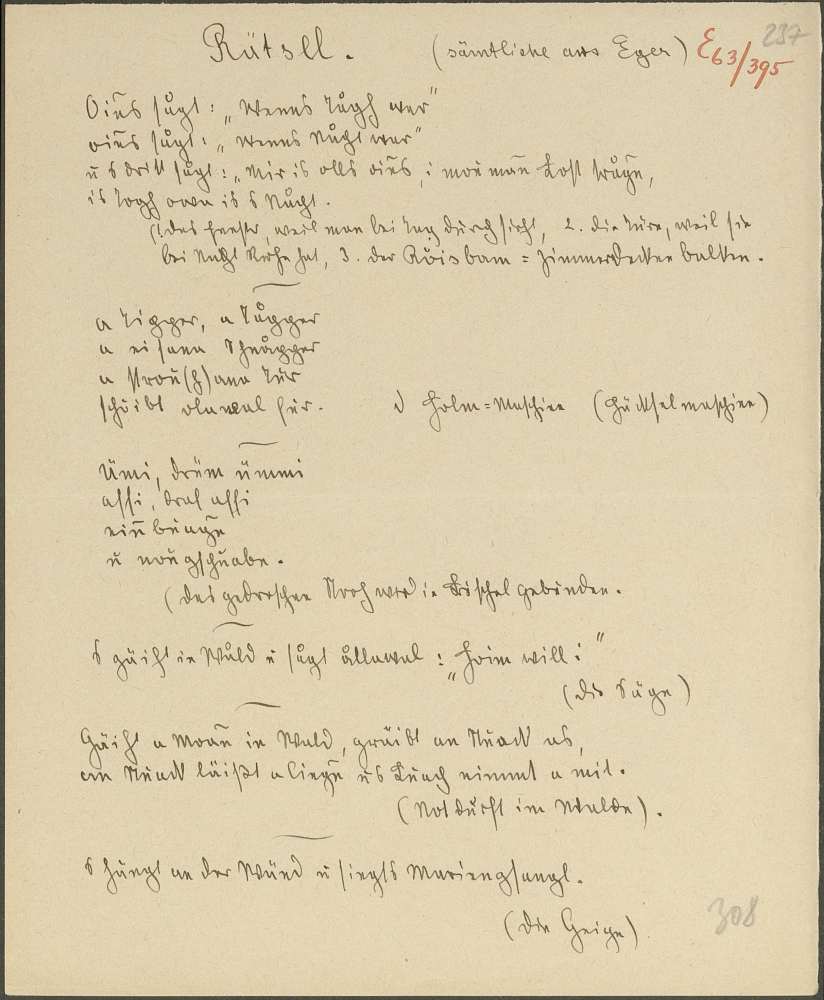 Rätsel. (sämtliche aus Eger) E63/395 237
Oins sågt: „Wenns Tågh war"
oins sågt: „wenns Nåcht war"
u s dritt sågt: „Mir is olls oins, i mou man Lost trågn,
is Togh owa is s Nåcht.
(1. das Fenster, weil man bei Tag durchsieht, 2. die Türe, weil sie
bei Nacht Ruhe hat, 3. der Röisbam = Zimmerdeckenbalken.
a Tipper, a Tåpper
a eisana Schnåpper
a strou(h)ana Tür
schöibt olawal für. d Holm=Maschien (Häckselmaschine)
Ümi, drüm ümmi
affi, draf affi
ein buagn
u nougschuabn.
(das gedroschene Stroh wird in Büschel gebunden.
s gäiht in Wåld u sågt ållawal: „hoim will i"
(die Säge)
Gäiht a Moan in Wald, gräibt an Stuack as,
an Stuack läißt a liegn u s Luach nimmt a mit.
(Notdurft im Walde).
s hängt an der Wänd u singts Mariengsangl.
(die Geige)
308